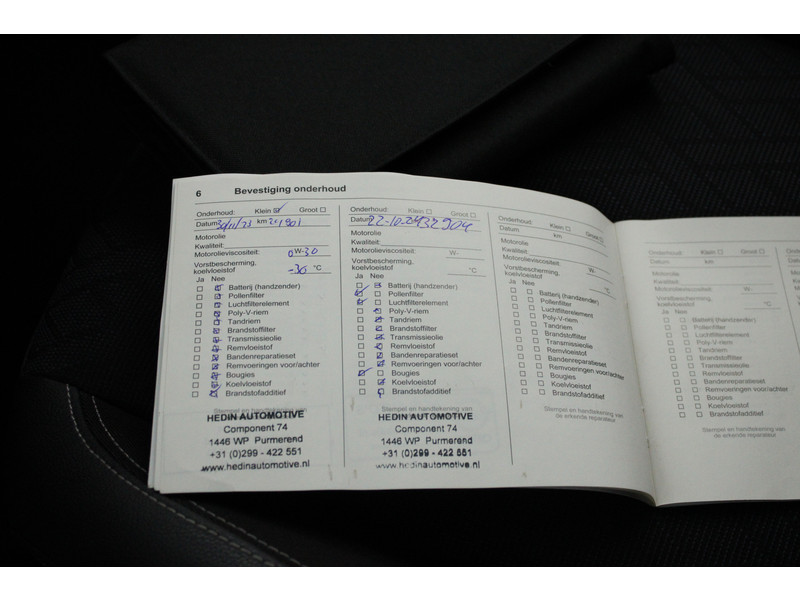 6 Bevestiging onderhoud
Onderhoud: Klein Groot
Datum 30/11/23 km 21901
Motorolie
Kwaliteit:
Motorolieviscositeit: 0 W-30
Vorstbescherming,
koelvloeistof -36 °C
Ja Nee
Batterij (handzender)
Pollenfilter
Luchtfilterelement
Poly-V-riem
Tandriem
Brandstoffilter
Transmissieolie
Remvloeistof
Bandenreparatieset
Remvoeringen voor/achter
Bougies
Koelvloeistof
Brandstofadditief
Stempel en handtekening van
HEDIN AUTOMOTIVE
Component 74
1446 WP Purmerend
+31 (0)299 - 422 551
www.hedinautomotive.nl
Onderhoud: Klein Groot
Datum 22-10-24 32904
Motorolie
Kwaliteit:
Motorolieviscositeit: W-
Vorstbescherming,
koelvloeistof °C
Ja Nee
Batterij (handzender)
Pollenfilter
Luchtfilterelement
Poly-V-riem
Tandriem
Brandstoffilter
Transmissieolie
Remvloeistof
Bandenreparatieset
Remvoeringen voor/achter
Bougies
Koelvloeistof
Brandstofadditief
Stempel en handtekening van
HEDIN AUTOMOTIVE
Component 74
1446 WP Purmerend
+31 (0)299 - 422 551
www.hedinautomotive.nl
Onderhoud: Klein Groot
Datum km
Motorolie
Kwaliteit:
Motorolieviscositeit: W-
Vorstbescherming,
koelvloeistof °C
Ja Nee
Batterij (handzender)
Pollenfilter
Luchtfilterelement
Poly-V-riem
Tandriem
Brandstoffilter
Transmissieolie
Remvloeistof
Bandenreparatieset
Remvoeringen voor/achter
Bougies
Koelvloeistof
Brandstofadditief
Stempel en handtekening van
de erkende reparateur
Onderhoud: Klein Groot
Datum km
Motorolie
Kwaliteit:
Motorolieviscositeit: W-
Vorstbescherming,
koelvloeistof °C
Ja Nee
Batterij (handzender)
Pollenfilter
Luchtfilterelement
Poly-V-riem
Tandriem
Brandstoffilter
Transmissieolie
Remvloeistof
Bandenreparatieset
Remvoeringen voor/achter
Bougies
Koelvloeistof
Brandstofadditief
Stempel en handtekening van
de erkende reparateur